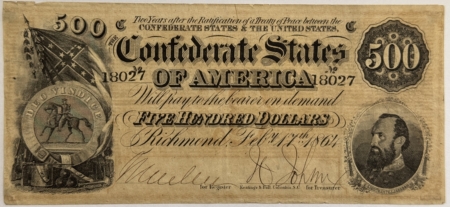 500 C Two Years after the Ratification of a Treaty of Peace between the C
CONFEDERATE STATES & THE UNITED STATES,
THE Confederate States 500
18027 OF AMERICA No 18027
Will pay to the bearer on demand
FIVE HUNDRED DOLLARS
Richmond, Feby 17th 1864
for Register for Treasurer
DEO VINDICE